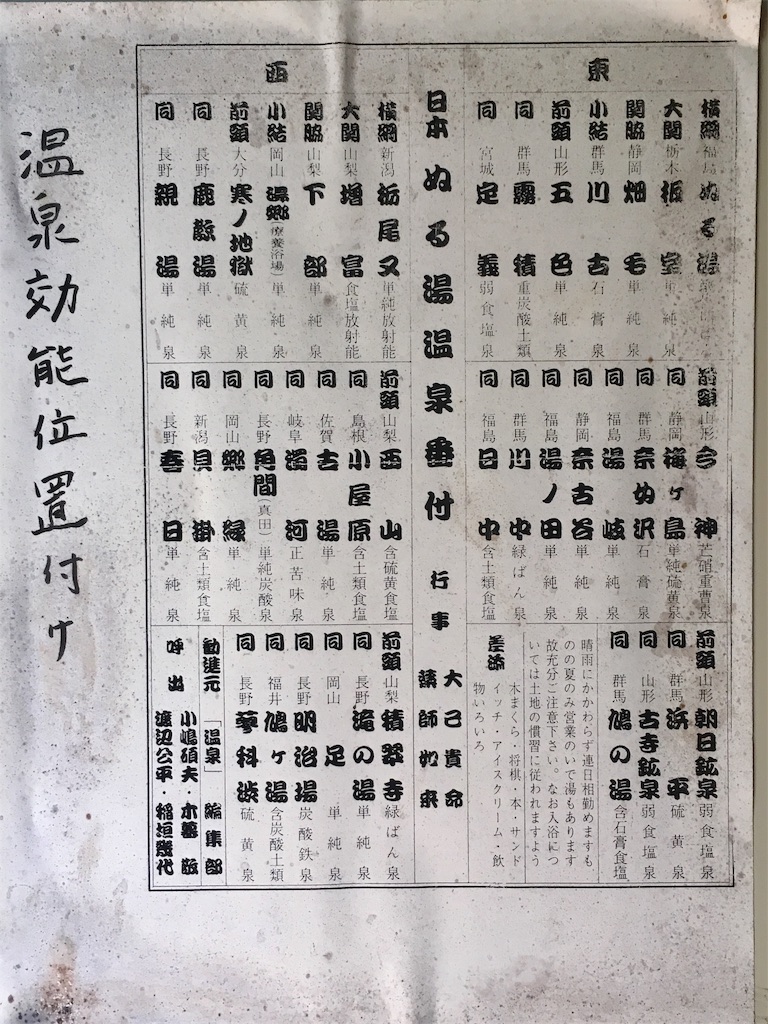 東
横綱 福島 ぬる湯
大関 栃木 板室 単純泉
関脇 静岡 畑毛 単純泉
小結 群馬 川古 石膏泉
前頭 山形 五色 単純泉
同 群馬 霧積 重炭酸土類
同 宮城 定義 弱食塩泉
前頭 山形 今神 芒硝重曹泉
同 静岡 梅ヶ島 単純硫黄泉
同 群馬 奈女沢 石膏泉
同 福島 湯岐 単純泉
同 静岡 奈古谷 単純泉
同 福島 湯ノ田 単純泉
同 群馬 川中 緑ばん泉
同 福島 日中 含土類食塩
前頭 山形 朝日鉱泉 弱食塩泉
同 群馬 浜平 硫黄泉
同 山形 古寺鉱泉 弱食塩泉
同 群馬 鳩の湯 含石膏食塩
晴雨にかかわらず連日相勤めますも
のの夏のみ営業のいで湯もあります
故充分ご注意下さい。なお入浴につ
いては土地の慣習に従われますよう
差添
木まくら・将棋・本・サンド
イッチ・アイスクリーム・飲
物いろいろ
日本ぬる湯温泉番付
行事
大己貴命
薬師如来
西
横綱 新潟 栃尾又 単純放射能
大関 山梨 増富 食塩放射能
関脇 山梨 下部 単純泉
小結 岡山 湯郷(療養浴場) 単純泉
前頭 大分 寒ノ地獄 硫黄泉
同 長野 鹿教湯 単純泉
同 長野 親湯 単純泉
前頭 山梨 西山 含硫黄食塩
同 島根 小屋原 含土類食塩
同 佐賀 古湯 単純泉
同 岐阜 濁河 正苦味泉
同 長野 角間(真田) 単純炭酸泉
同 岡山 郷緑 単純泉
同 新潟 貝掛 含土類食塩
同 長野 春日 単純泉
前頭 山梨 積翠寺 緑ばん泉
同 長野 滝の湯 単純泉
同 岡山 足 単純泉
同 長野 明治湯 炭酸鉄泉
同 福井 鳩ヶ湯 含炭酸土類
同 長野 蓼科渋 硫黄泉
勧進元 「温泉」編集部
呼出 小嶋碩夫・木暮敬
渡辺公平・稲垣幾代
温泉効能位置付け